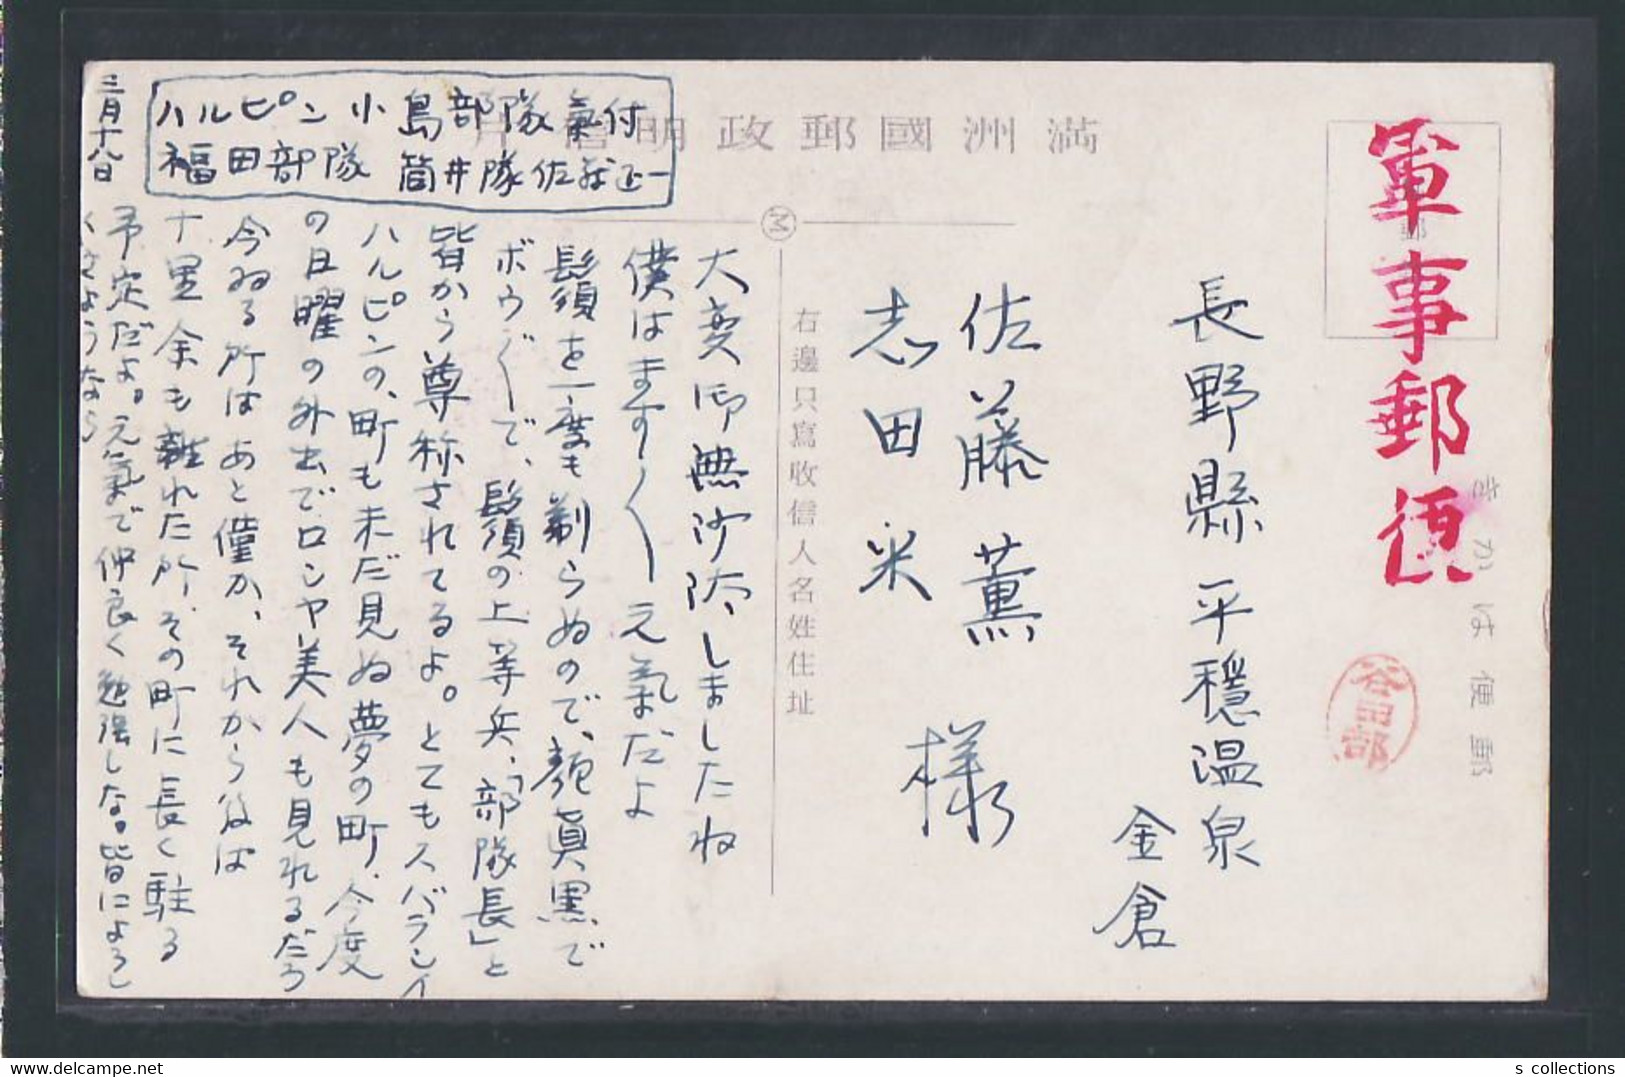 軍事郵便
郵
きかは便郵
谷田部
満洲國郵政明信片
M
右邊只寫收信人名姓住址
長野縣平穏温泉
金倉
佐藤薫
志田米
様
大変御無沙汰しましたね
僕はます〱元氣だよ
髭須を一度も剃らぬので、顔真黒で
ボウ〲で、髭須の上等兵、「部隊長」と
皆から尊称されてるよ。とてもスバラシイ
ハルピンの、町も未だ見ぬ夢の町、今度
の日曜の外出でロシヤ美人も見れるだろ
今ゐる所はあと僅か、それから後は
十里余も離れた所、その町に長く駐る
予定だよ。元氣で仲良く勉強しな。皆によろし
くさようなら
三月十八日
ハルピン小島部隊氣付
福田部隊筒井隊佐藤正一
s collections